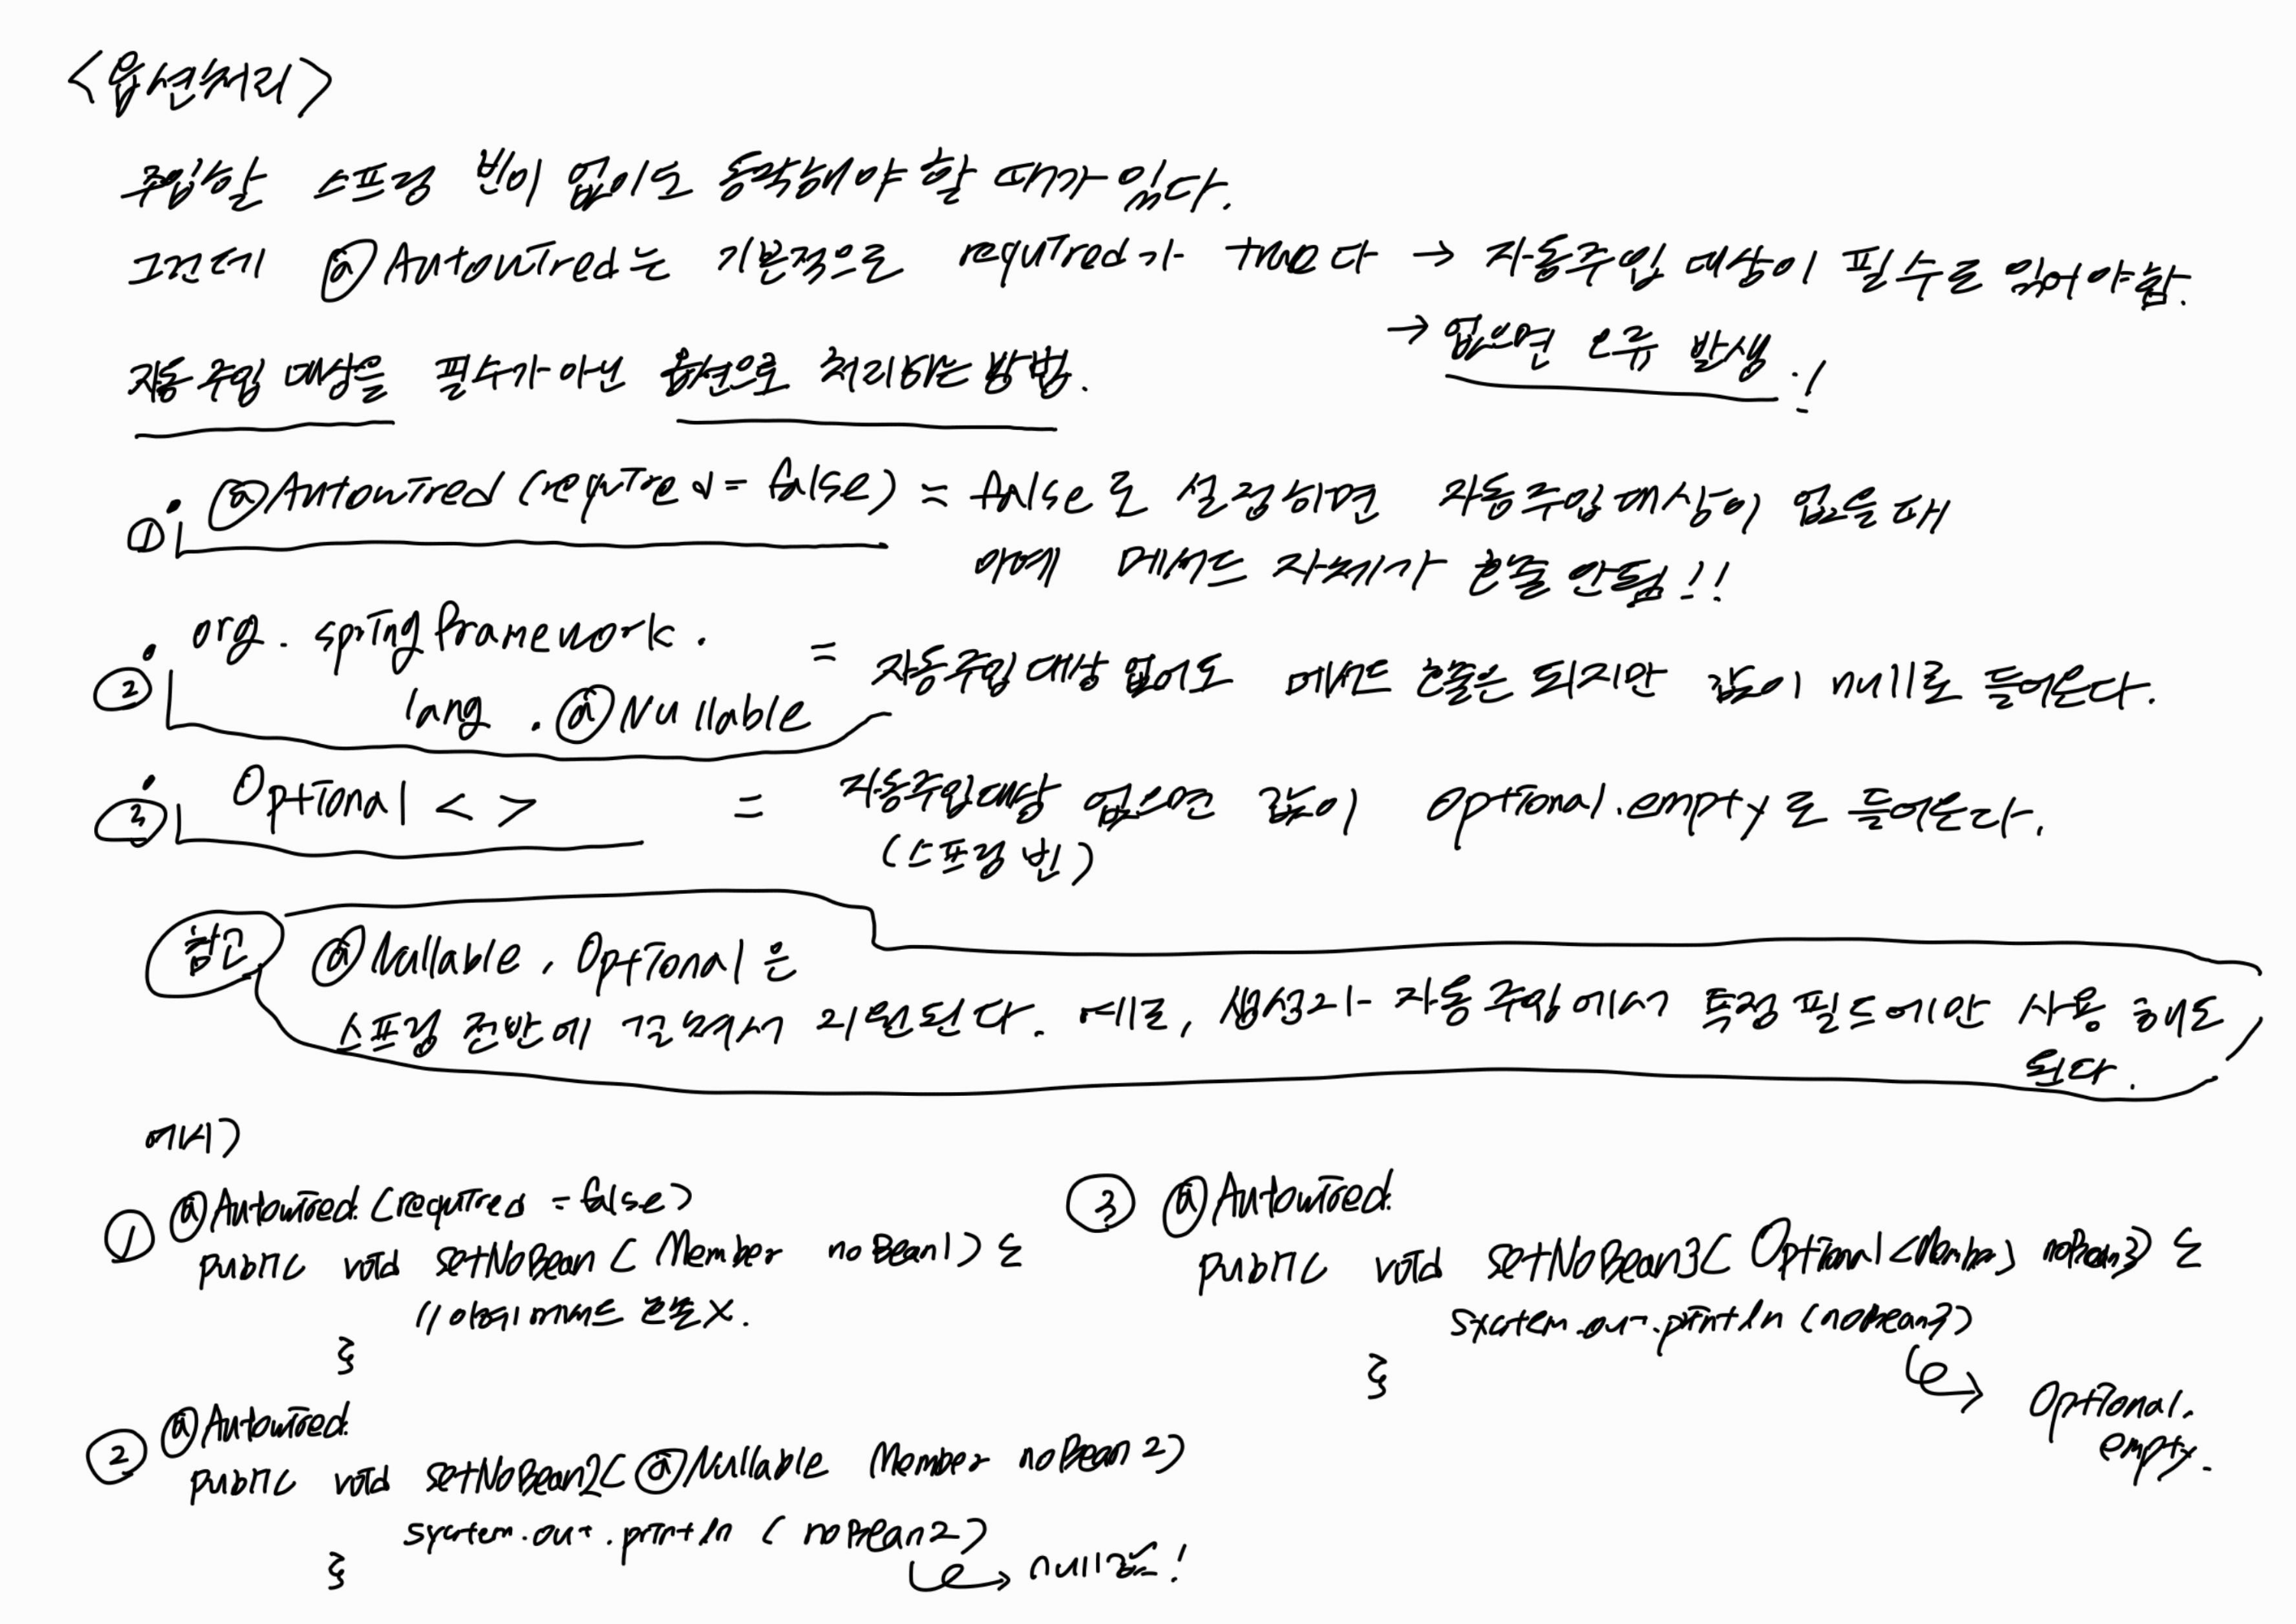 <옵션처리>
주입할 스프링 빈이 없이도 동작해야 할 때가 있다.
그런데 @Autowired는 기본적으로 required가 true다 → 자동주입 대상이 필수로 있어야함.
→ 없으면 오류 발생.!
자동 주입 대상을 필수가 아닌 옵션으로 처리하는 방법.
① @Autowired (required = false) = false로 설정하면 자동주입 대상이 없을 때
아예 메서드 자체가 호출 안됨!!
② org. springframework.
lang . @Nullable = 자동주입 대상 없어도 메서드 호출은 되지만 값이 null로 들어온다.
③ Optional < > = 자동주입대상 없으면 값이 Optional.empty로 들어온다.
(스프링 빈)
참고 @Nullable, Optional은
스프링 전반에 걸쳐서 지원된다. 예로, 생성자 자동 주입에서 특정 필드에만 사용 해도
된다.
예시)
① @Autowired (required = false)
public void setNoBean ( Member noBean1) {
// 아예 메서드 호출 X.
}
② @Autowired
public void setNoBean2( @Nullable Member noBean2)
system.out.println ( noBean2)
→ null값!
}
③ @Autowired
public void setNoBean3( Optional<Member> noBean3) {
system.out.println (noBean3)
}
→ Optional.
empty.